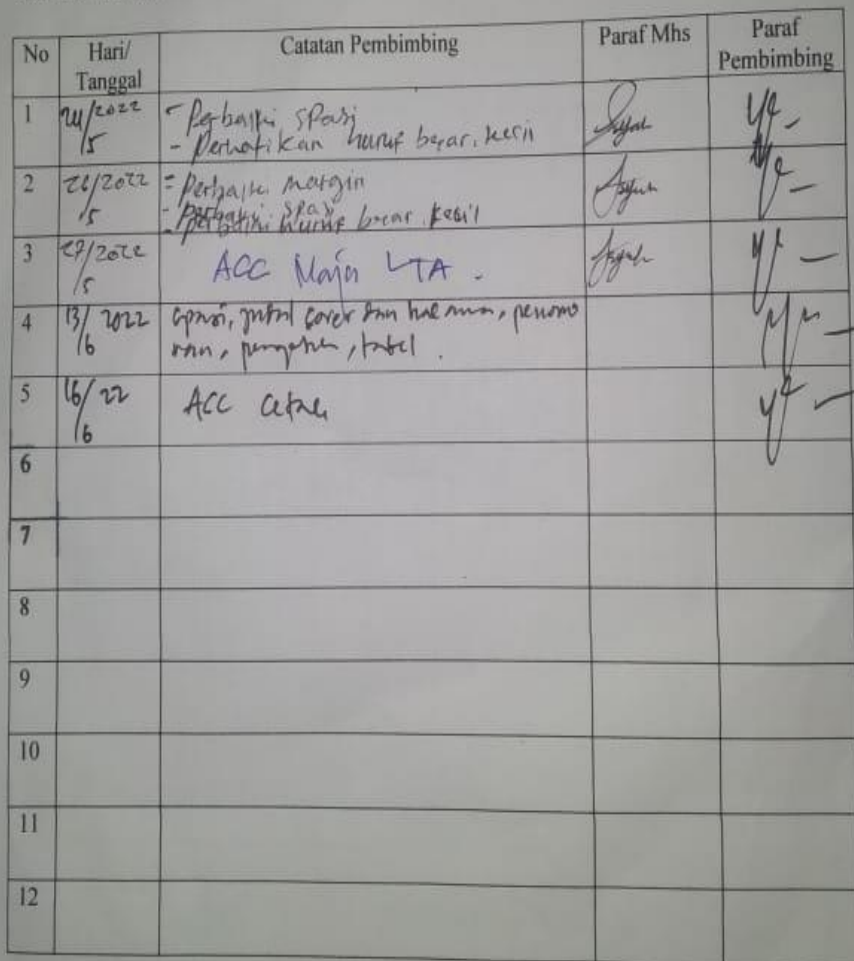 No Hari/ Tanggal Catatan Pembimbing Paraf Mhs Paraf Pembimbing
1 24/2022 - Perbaiki spasi
/5 - Perhatikan huruf besar, kecil
2 26/2022 - Perbaiki margin
/5 - Perbaiki spasi
- Perbaiki huruf besar, kecil
3 27/2022 ACC Maju LTA .
/5
4 13/ 2022 spasi, judul cover dan halaman, penomo
/6 ran, , tabel .
5 16/ 22 ACC Cetak
/6
6
7
8
9
10
11
12